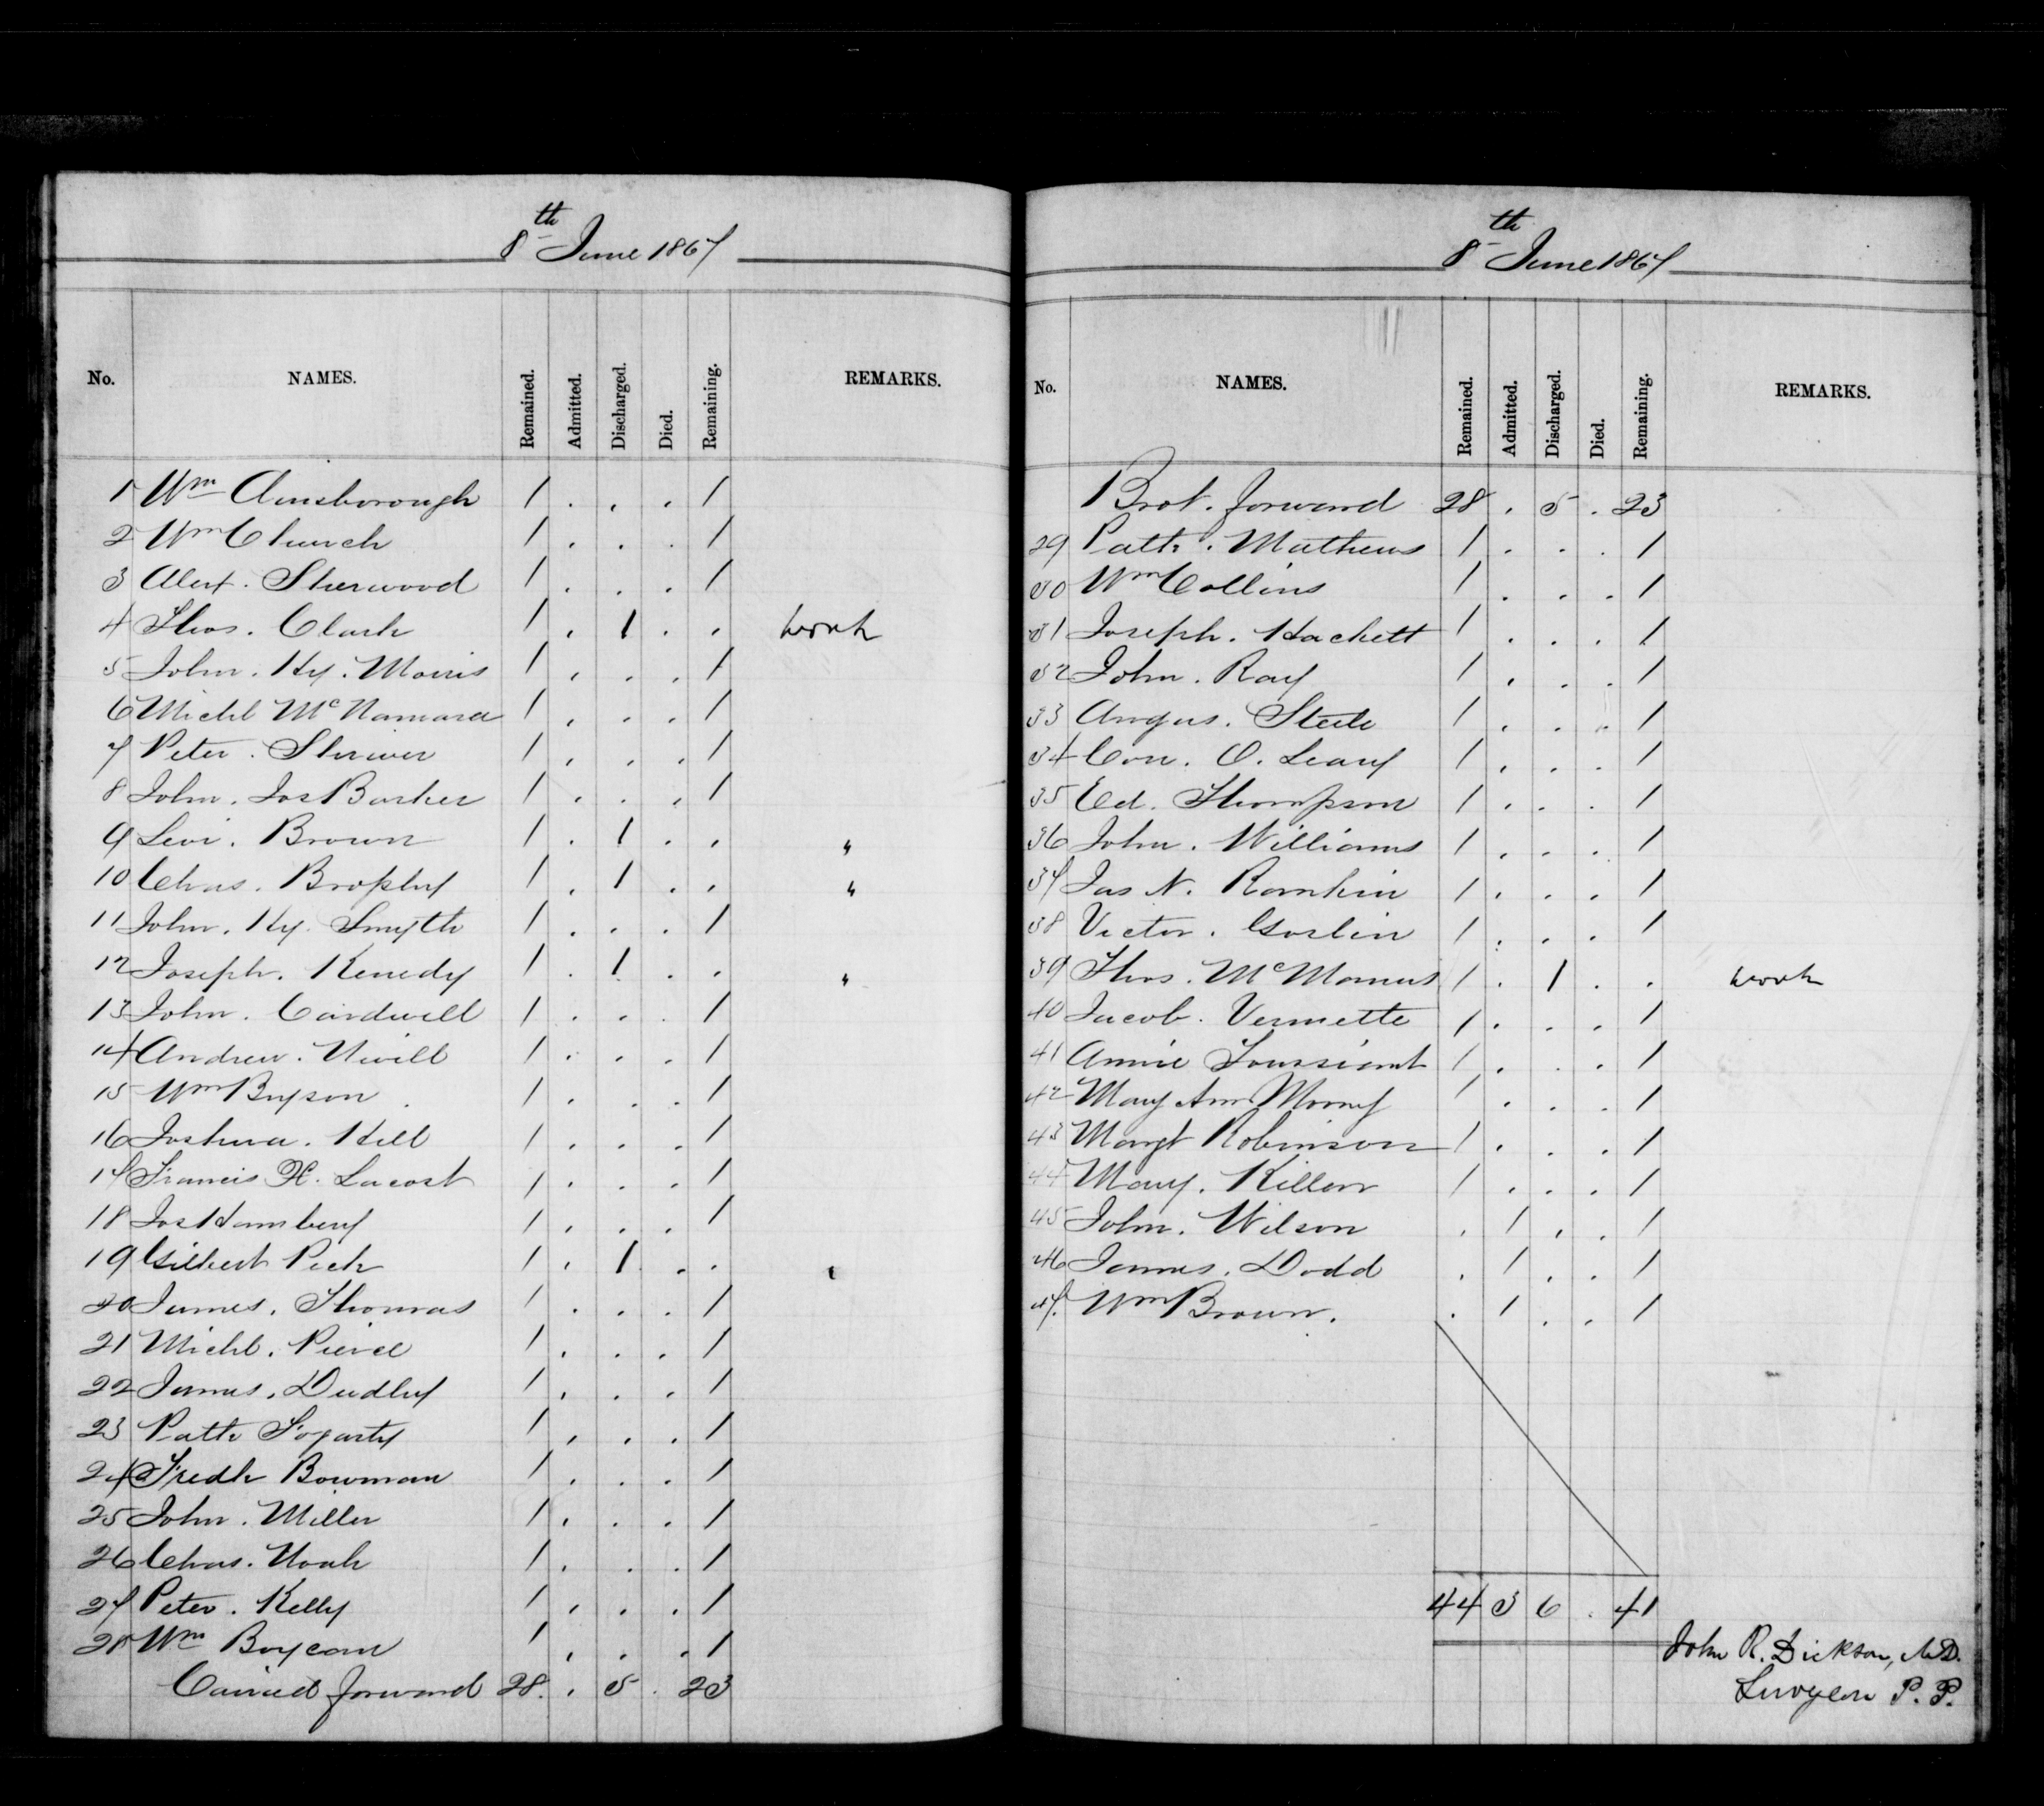 8th June 1867
No. NAMES. Remained. Admitted. Discharged. Died. Remaining. REMARKS.
1 Wm Ainsborough 1 . . . 1
2 Wm Church 1 . . . 1
3 Alext. Sherwood 1 . . . 1
4 Thos. Clark 1 . 1 . . work
5 John. Hy. Morris 1 . . . 1
6 Michl McNamara 1 . . . 1
7 Peter. Shriver 1 . . . 1
8 John. Jos Barker 1 . . . 1
9 Levi. Brown 1 . 1 . . "
10 Chas. Brophy 1 . 1 . . "
11 John. Hy. Smyth 1 . . . 1
12 Joseph. Kenedy 1 . 1 . . "
13 John. Cardwell 1 . . . 1
14 Andrew. Nivill 1 . . . 1
15 Wm Bryson . 1 . . . 1
16 Joshua. Hill 1 . . . 1
17 Francis X. Lacost 1 . . . 1
18 Jos Hambery 1 . . . 1
19 Gilbert Peck 1 . 1 . . "
20 James. Thomas 1 . . . 1
21 Michl. Pierce 1 . . . 1
22 James. Dudley 1 . . . 1
23 Patk Fogarty 1 . . . 1
24 Fredk Bowman 1 . . . 1
25 John. Miller 1 . . . 1
26 Chas. Noah 1 . . . 1
27 Peter. Kelly 1 . . . 1
28 Wm Boycan 1 . . . 1
Carried forward 28 . 5 . 23
8th June 1867
No. NAMES. Remained. Admitted. Discharged. Died. Remaining. REMARKS.
Brot. forward 28 . 5 . 23
29 Patk. Mathews 1 . . . 1
30 Wm Collins 1 . . . 1
31 Joseph. Hackett 1 . . . 1
32 John. Ray 1 . . . 1
33 Angus. Steele 1 . . . 1
34 Con. O. Leary 1 . . . 1
35 Ed. Thompson 1 . . . 1
36 John. Williams 1 . . . 1
37 Jas N. Rankin 1 . . . 1
38 Victor. Goslin 1 . . . 1
39 Thos. McManus 1 . 1 . . work
40 Jacob. Vermette 1 . . . 1
41 Annie Toussiant 1 . . . 1
42 Mary Ann Morny 1 . . . 1
43 Margt Robinson 1 . . . 1
44 Mary. Killen 1 . . . 1
45 John. Wilson . 1 . . 1
46 James. Dodd . 1 . . 1
47. Wm Brown. . 1 . . 1
44 3 6 . 41
John R. Dickson, M.D.
Surgeon P. P.